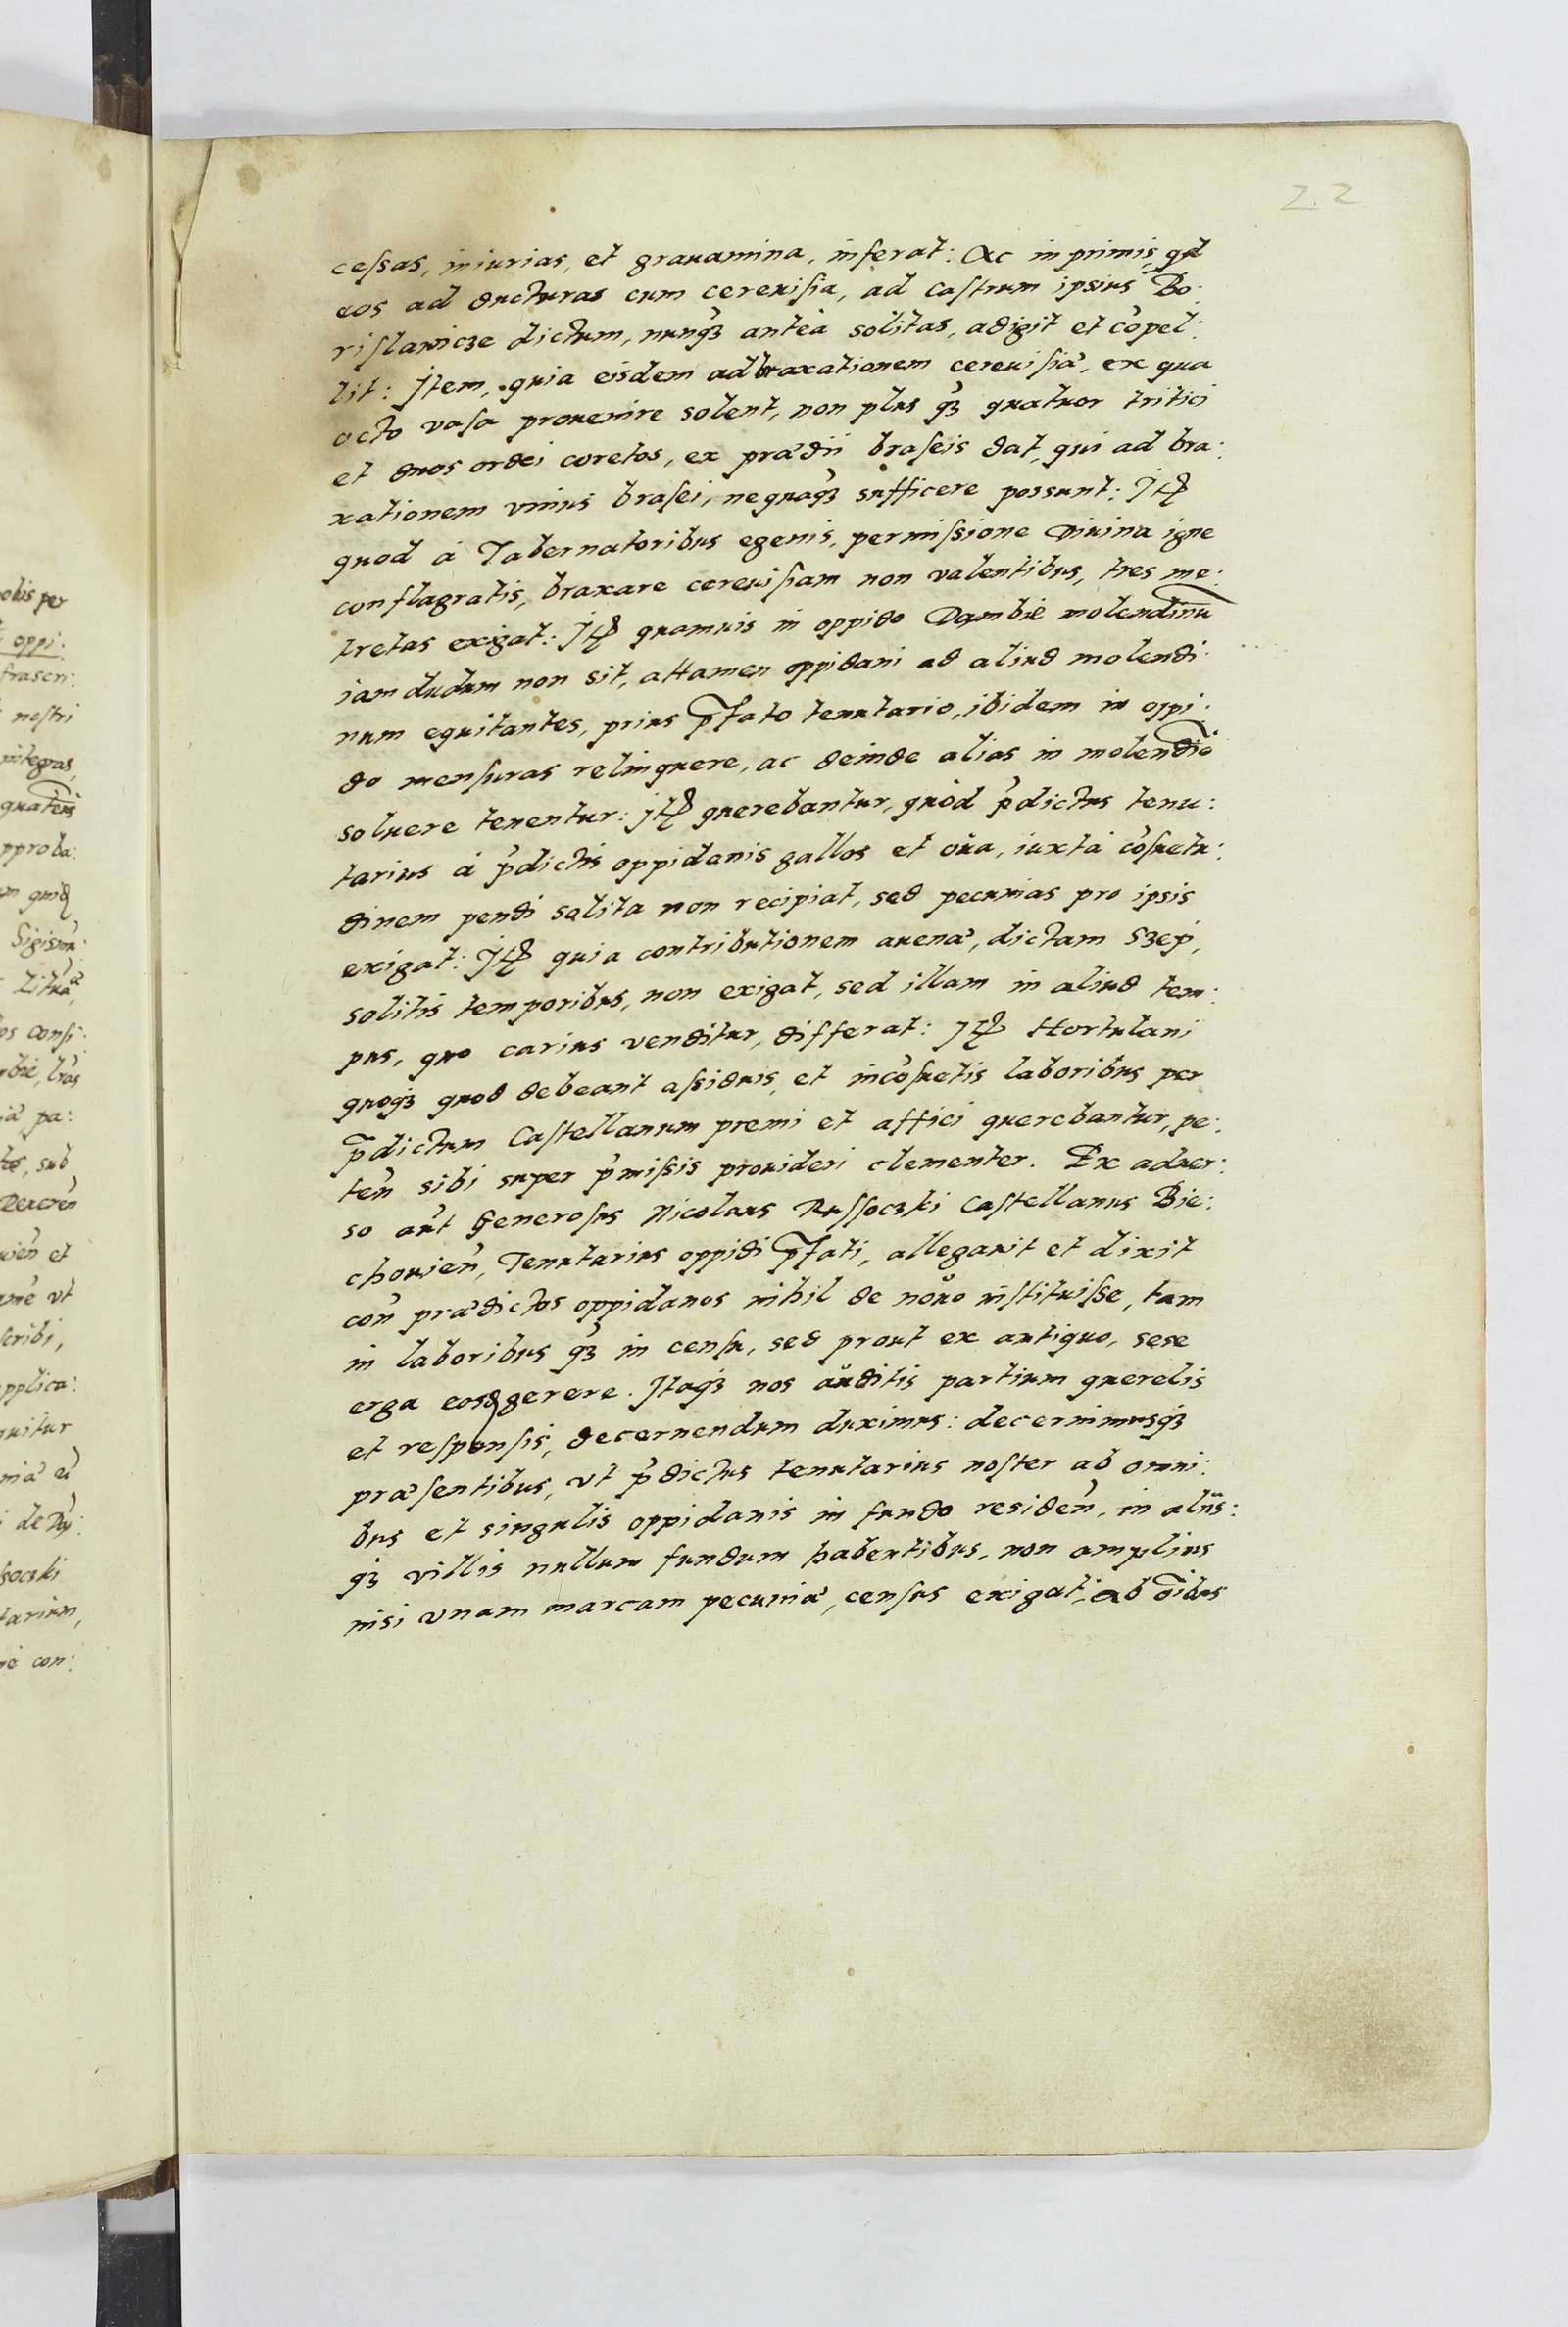 22
ceſsas, iniurias, et grauamina, inferat: Ac in primis, qd
eos ad ducturas cum cereuiſia, ad caſtrum ipsius Bo:
riſlawicze dictum, nunqȝ anteà solitas, adigit et cõpel:
lit: Item, quia eisdem ad braxationem cereuiſiæ, ex qua
octo vaſa prouenire solent, non plus qȝ quatuor tritici
et duos ordei coretos, ex prædii braſeis dat, qui ad bra:
xationem vnius braſei, nequaqȝ sufficere possunt: Itꝫ
quod à Tabernatoribus egenis, permiſsione Diuina igne
conflagratis, braxare cereuiſiam non valentibus, tres me:
tretas exigat: Itꝫ quamuis in oppido Dambie molendinũ
iam dudum non sit, attamen oppidani ad aliud molendi:
num equitantes, prius p̃fato tenutario, ibidem in oppi:
do menſuras relinquere, ac deinde alias in molendiõ
soluere tenentur: Itꝫ querebantur, quòd p̃dictus tenu:
tarius à p̃dictis oppidanis gallos et oua, iuxtà cõſuetu:
dinem pendi solita non recipiat, sed pecunias pro ipsis
exigat: Itꝫ quia contributionem auenæ, dictam Szep,
solitis temporibus, non exigat, sed illam in aliud tem:
pus, quo carius venditur, differat: Itꝫ Hortulani
quoqȝ quod debeant aſsiduis, et incõſuetis laboribus per
p̃dictum Caſtellanum premi et affici querebantur, pe:
teñ sibi super p̃miſsis prouideri clementer. Ex aduer:
so aũt Generoſus Nicolaus Ruſſoczki Caſtellanus Bie:
chouieñ, Tenutarius oppidi p̃fati, allegauit et dixit
coñ prædictos oppidanos nihil de nouo inſtituiſse, tam
in laboribus qȝ in cenſu, sed prout ex antiquo, sese
erga eosd gerere. Itaqȝ nos auditis partium querelis
et reſponſis, decernendum duximus: decernimusqȝ
præſentibus, vt p̃dictus tenutarius noſter ab omni:
bus et singulis oppidanis in fundo resideñ, in aliis:
qȝ villis nullum fundum habentibus, non amplius
nisi vnam marcam pecuniæ, cenſus exigat, ab õibus
obis per
oppi:
frascri:
noſtri
integras,
quateñ
pproba:
Sigism:
os conſi:
pa:
sub
uieñ et
vt
scribi,
pplica:
uitur
soczki
tarium,
con: